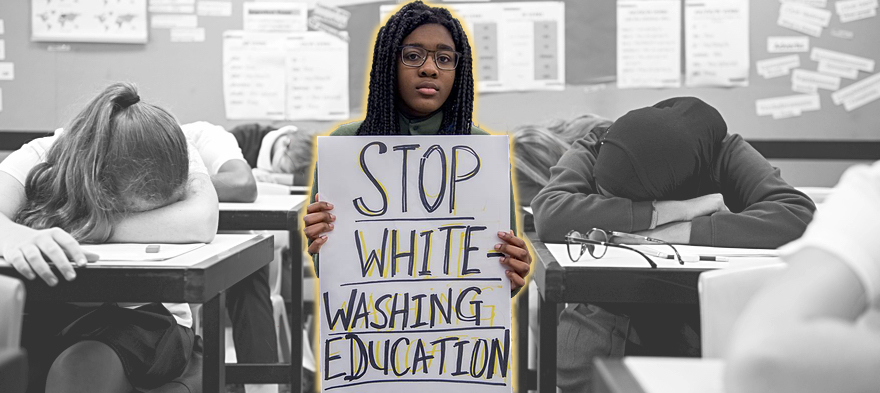 STOP
WHITE-
WASHING
EDUCATION